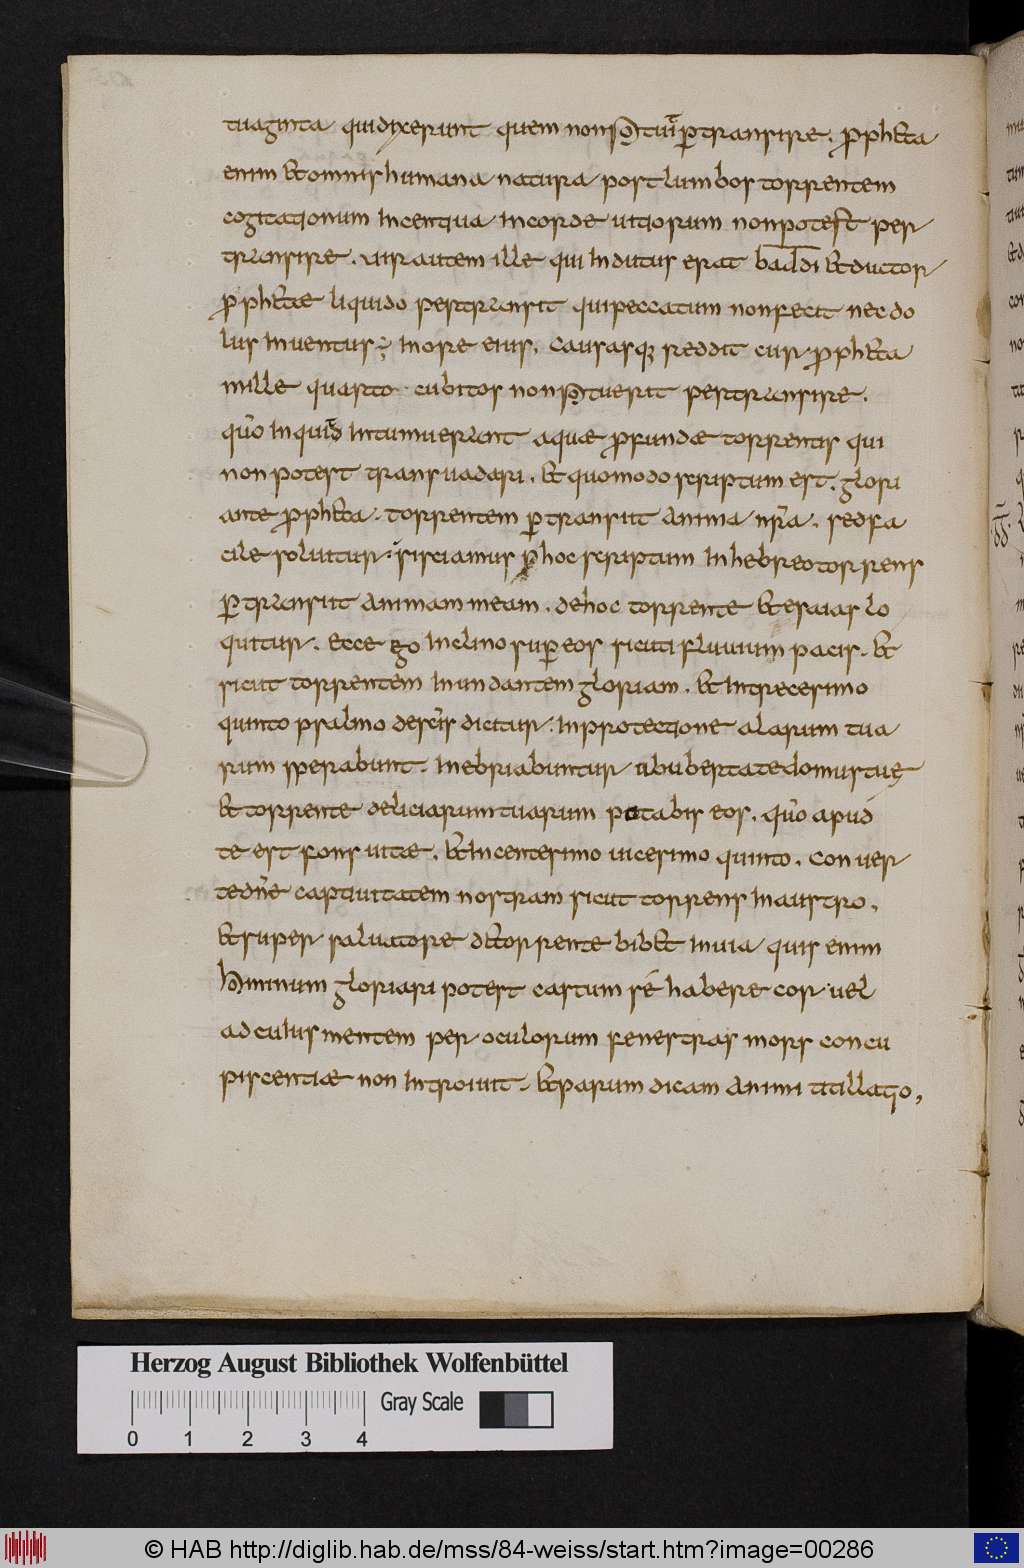 tuaginta quidixerunt quem non potuit ptransire. ppheta
enim & omnis humana natura post lumbos torrentem
cogitationum Incentiua Incorde uitiorum non potest per
transire. uir autem ille qui Indutus erat baddi & ductor
pphetae liquido pertransit qui peccatum non fecit nec do
lus Inuentus; In ore eius. causasq; reddit cur ppheta
mille quarto cubitos non potuerit pertransire.
quo Inquid Intumuerunt aquae pfundae torrentis qui
non potest transuadari. & quomodo scriptum est. glori
ante ppheta. torrentem ptransiit anima nra. sed fa
cile soluitur. si sciamus p hoc scriptum In hebreo torrens
ptransiit animam meam. de hoc torrente & esaias lo
quitur. ecce ego Inclino sup eos sicuti fluuium pacis. &
sicut torrentem Inundantem gloriam. & In trecesimo
quinto psalmo de scis dicitur. In protectione alarum tua
rum sperabunt. Inebriabuntur ab ubertate domus tuę
& torrente deliciarum tuarum potabis eos. quo apud
te est fons uitae. & Incentesimo uicesimo quinto. conuer
te dne captiuitatem nostram sicut torrens In austro.
& super saluatore de torrente bib& Inuia quis enim
hominum gloriari potest castum se habere cor uel
ad cuius mentem per oculorum fenestras mors concu
piscentiae non Introiuit. & parum dicam animi titillatio,
Herzog August Bibliothek Wolfenbüttel
Gray Scale
0 1 2 3 4
© HAB http://diglib.hab.de/mss/84-weiss/start.htm?image=00286